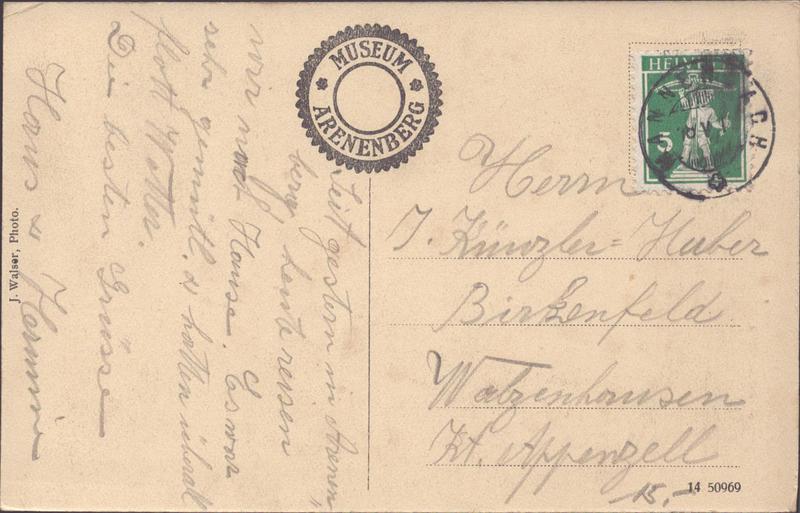 MUSEUM
ARENENBERG
HELVETIA
5
MANNENBACH
Seit gestern in Arenen„
berg heute reisen
wir nach Hause. Es war
sehr gemütl. & hatten überall
flott Wetter.
Die besten Grüsse
Hans u Hermine
J. Walser, Photo.
Herrn
J. Künzler=Huber
Birkenfeld
Walzenhausen
Kt. Appenzell
15.-
14 50969